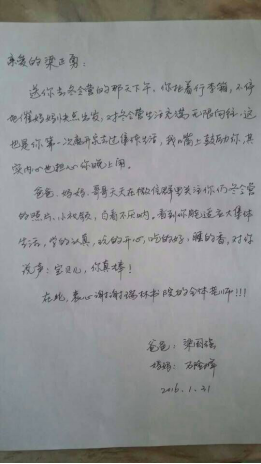 亲爱的梁正勇:
送你去冬令营的那天下午,你拉着行李箱,不停
地催妈妈快点出发,对冬令营生活充满无限向往,这
也是你第一次离开家去过集体生活,我们嘴上鼓励你,其
实内心也担心你晚上闹。
爸爸、妈妈、哥哥天天在微信群里关注你们冬令营
的照片、小视频,百看不厌呐,看到你能适应大集体
生活,学的认真,玩的开心,吃的好,睡的香,对你
说声:宝贝儿,你真棒!
在此,衷心谢谢瑞林书院的全体老师!!!
爸爸:梁国强
妈妈:
2016.1.31